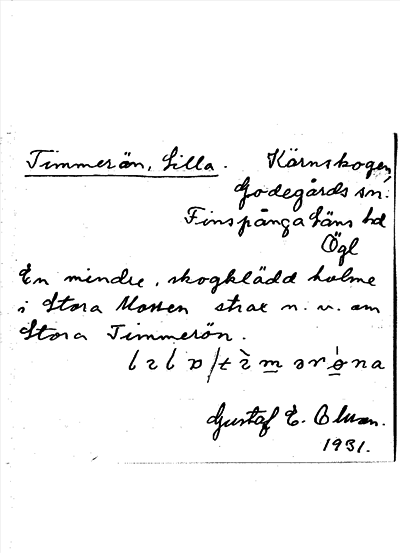 Timmerön, Lilla. Kärnskogen,
Godegårds sn.
Finspånga läns hd
Ögl
En mindre, skogklädd holme
i Stora Mossen strax n. v. om
Stora Timmerön.
Gustaf E. Bluon.
1931.